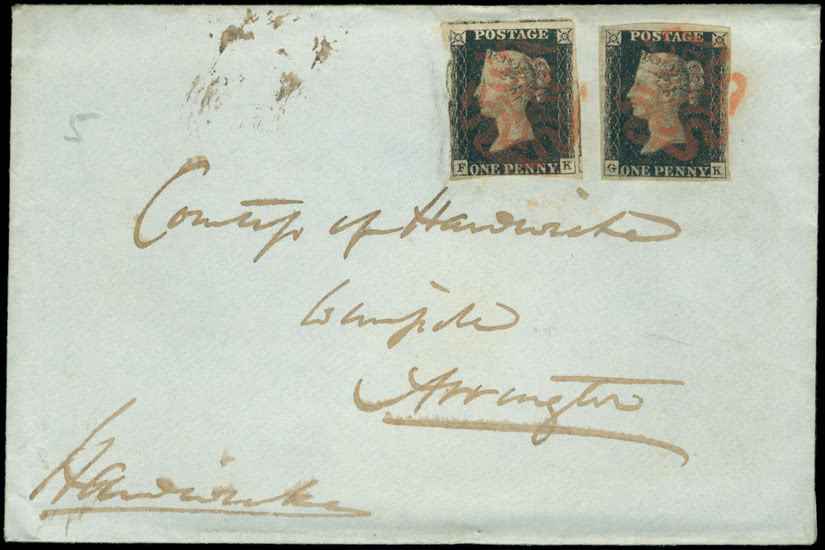 5
POSTAGE
F ONE PENNY K
POSTAGE
G ONE PENNY K
Countess of Hardwicke
Wimpole
Arrington
Hardwicke